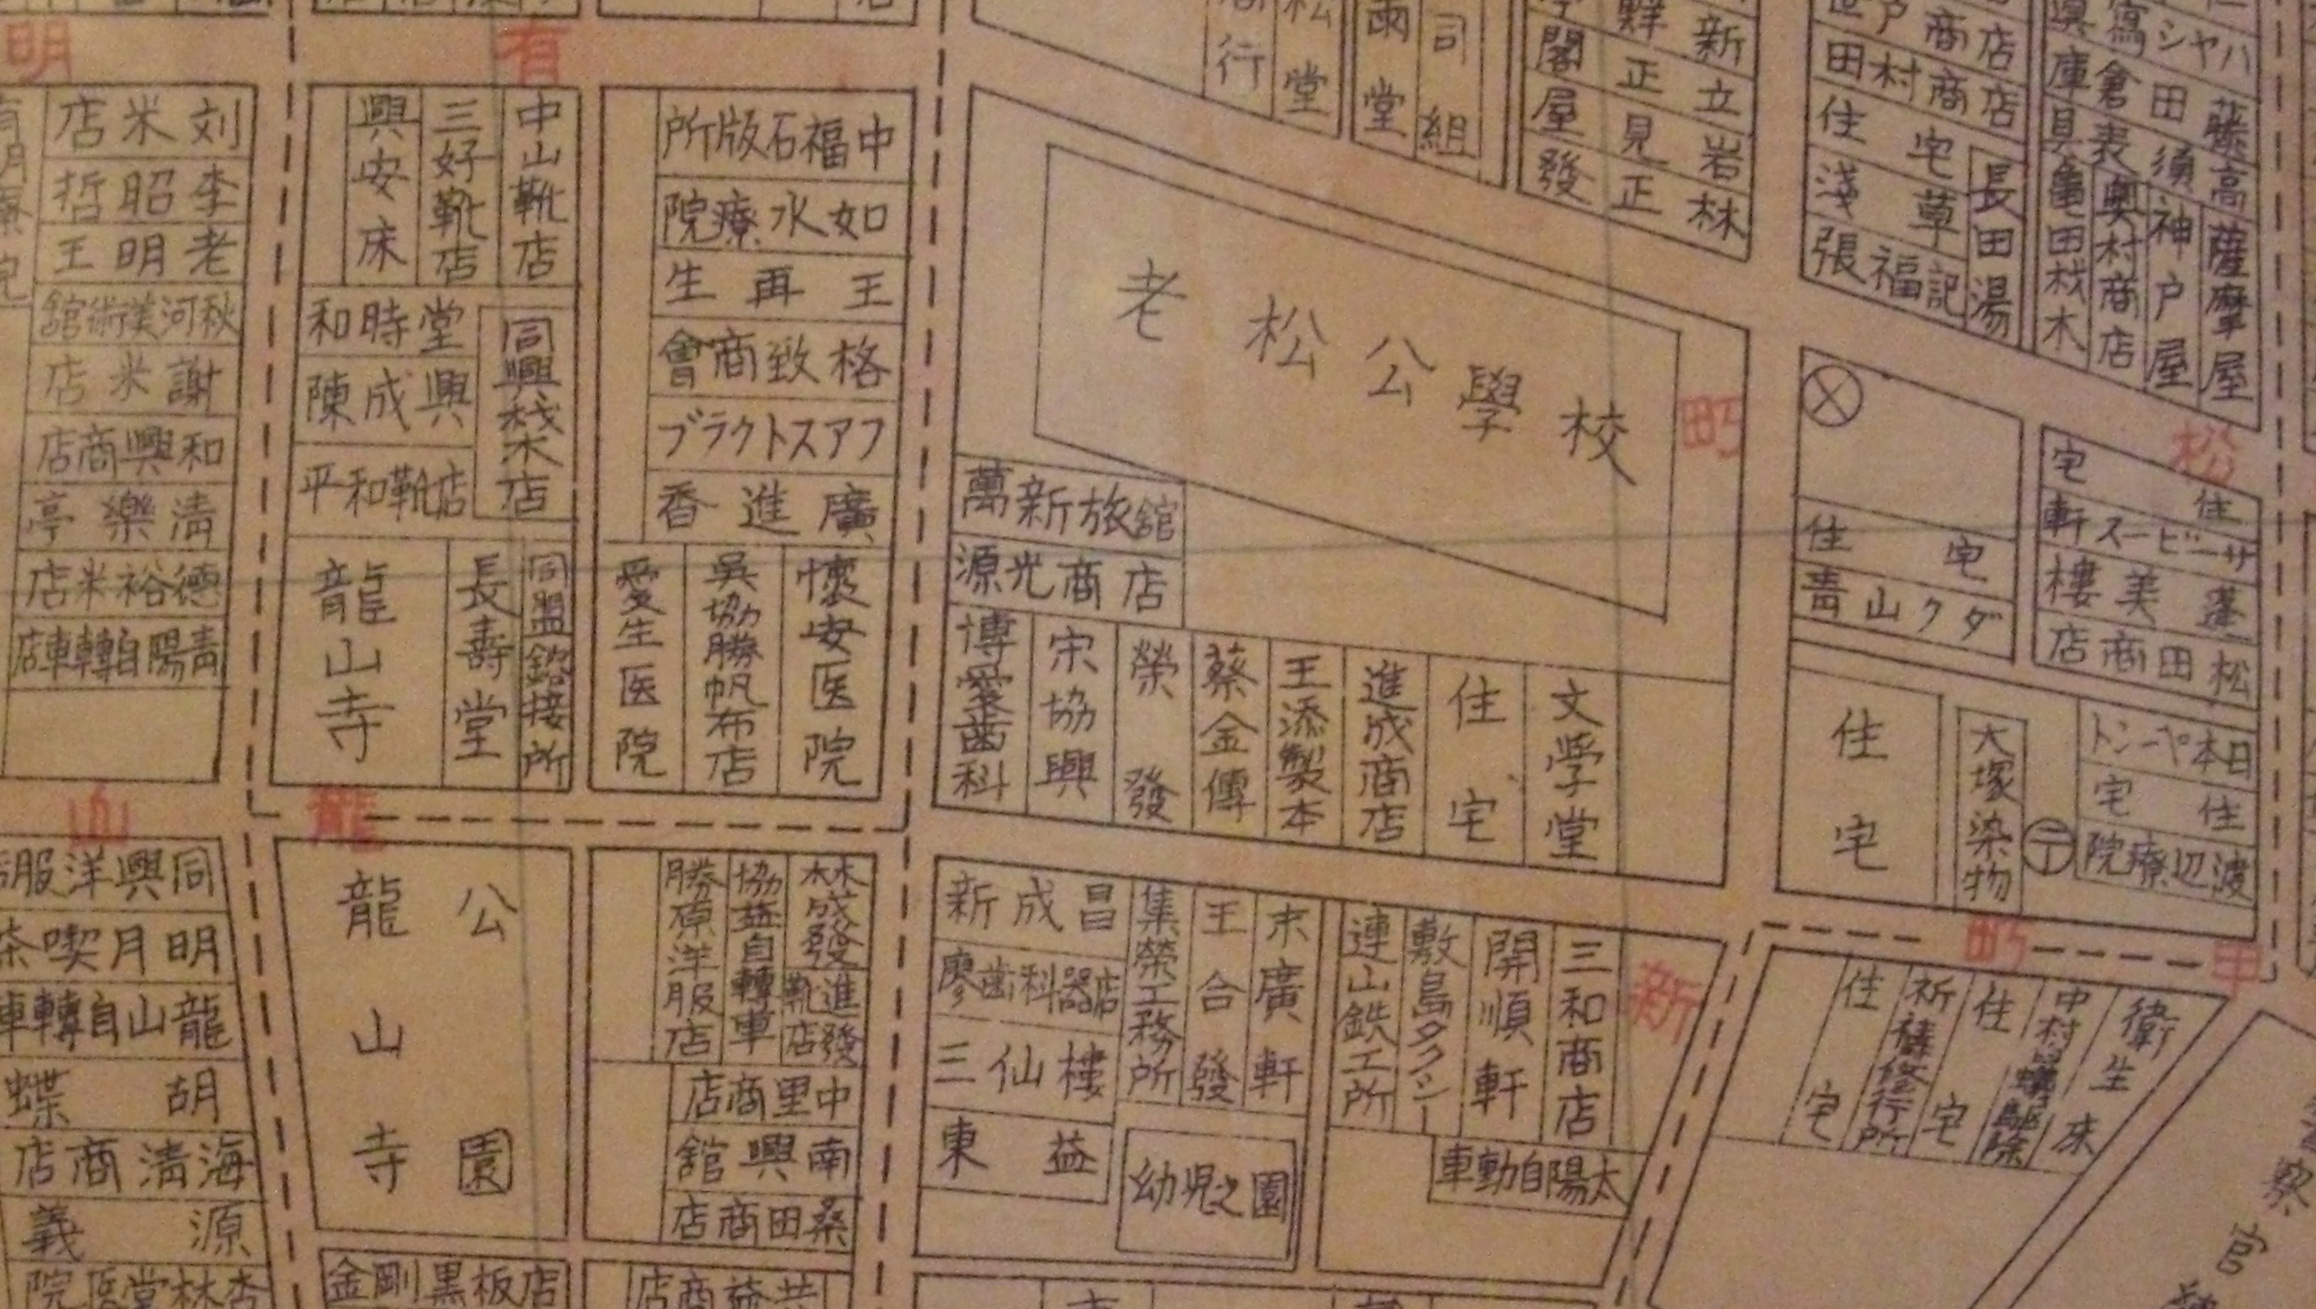 明
有
町
松
山
龍
新
町
甲
刘米店
李昭哲
老明王
秋河美術館
謝米店
和興商店
清樂亭
德裕米店
青陽自轉車店
興安床
三好靴店
中山靴店
和時堂
陳成興
平和靴店
同興栈
店
龍山寺
長壽堂
同盟鎔接所
中福石版所
如水療院
王再生
格致商會
フアストクラブ
廣進香
愛生医院
吳協勝帆布店
懷安医院
商行
松堂
雨堂
司組
閣屋發
鮮正見正
新立岩林
老松公學校
萬新旅館
源光商店
博愛歯科
宋協興
榮發
蔡金傳
王添製本
進成商店
住宅
文学堂
戸商店
田村商店
住宅
淺草
長田湯
張福記
ハヤシ寫眞
藤田倉庫
高須表具
亀田材木
奥村商店
神戸屋
薩摩屋
住宅
サービース軒
蓬美樓
松田商店
住宅
青山タクダ
住宅
大塚染物
日本ペーント
住宅
渡辺療院
同興洋服店
明月喫茶
龍山自轉車
胡蝶
海清商店
源義
杏林堂医院
龍山寺公園
金剛黒板店
勝原洋服店
協益自轉車
林成發
進發靴店
中里商店
南興館
桑田商店
共益商店
新成昌
廖歯科器店
三仙樓
東益
集榮工務所
王合發
末廣軒
幼児之園
連山鉄工所
敷島タクシー
開順軒
三和商店
太陽自動車
住宅
祈祷修行所
住宅
中村白蟻駆除
衛生床
察官